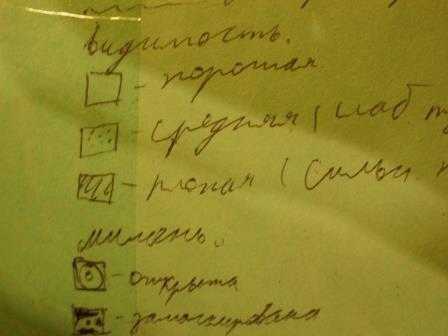 видимость.
- хорошая
- средняя ( слаб. т
- плохая ( сильн. т
мишень.
- открыта
- замаскирована